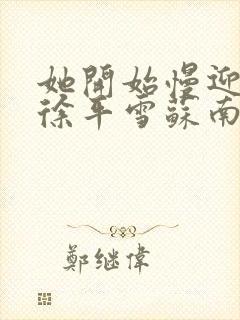 她開始慢迎
徐年雪蘇南
鄭继偉